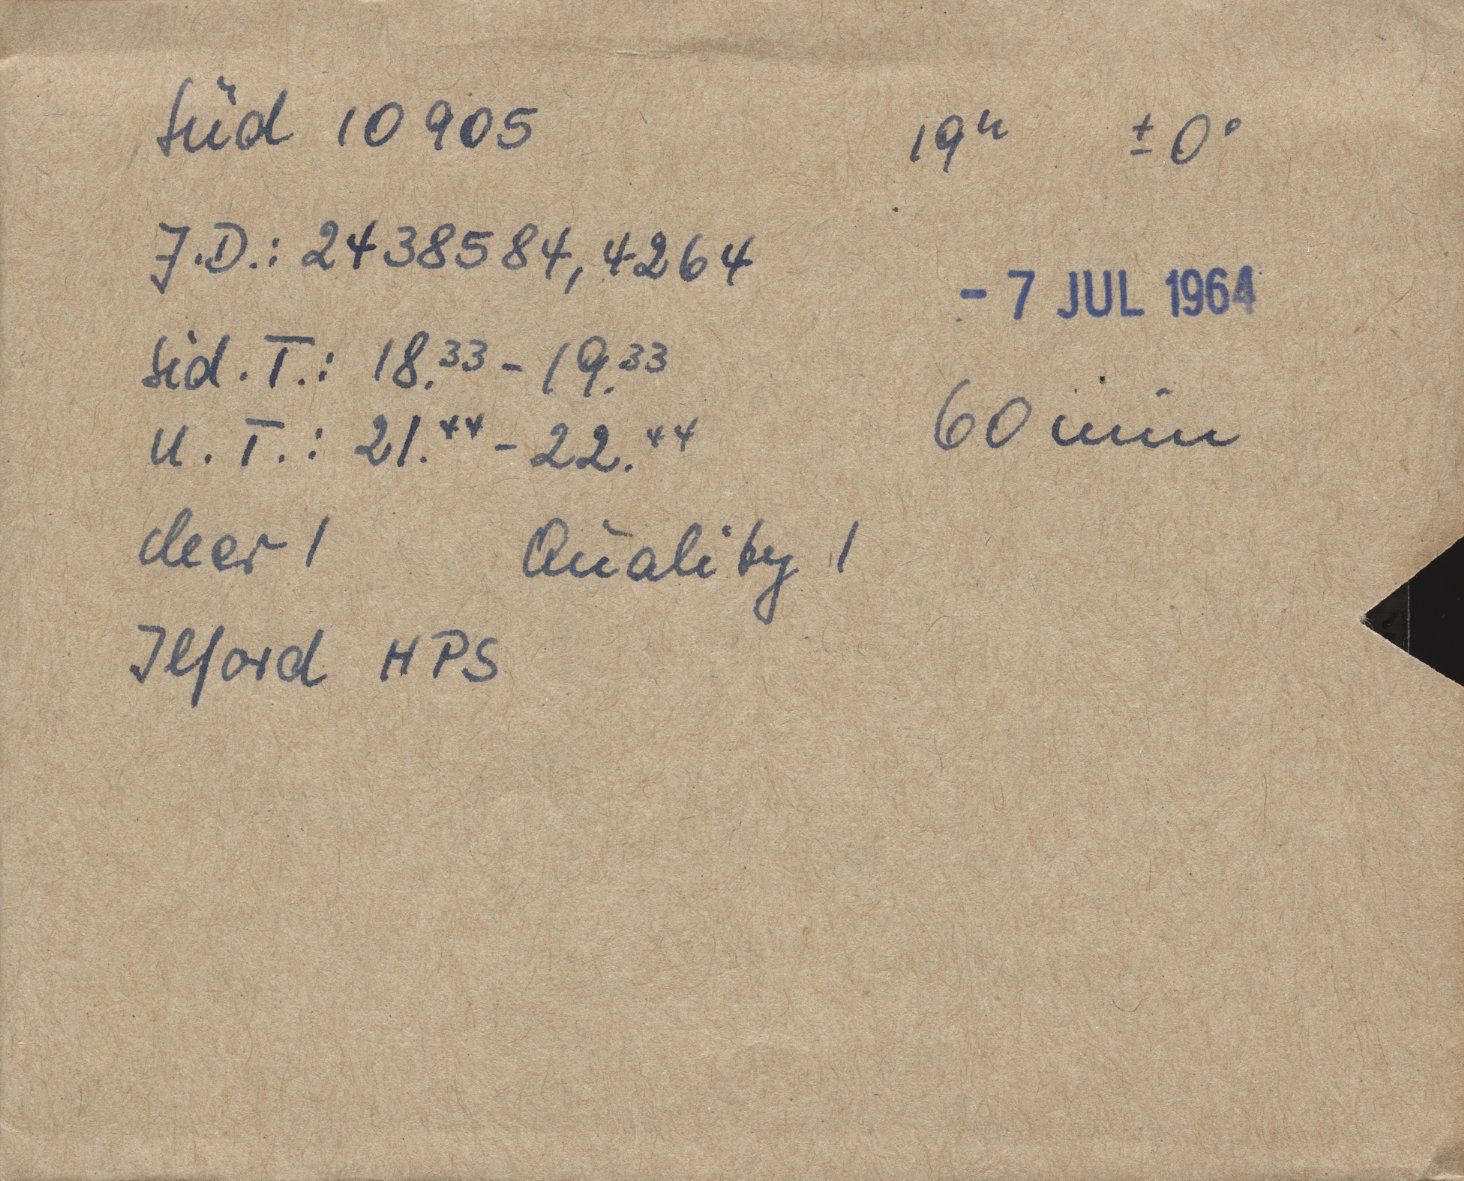 Süd 10905 19ʰ ±0°
J.D.: 2438584,4264
- 7 JUL 1964
Sid. T.: 18.³³ - 19.³³
60 min
U. T.: 21.⁴⁴ - 22.⁴⁴
clear 1 Quality 1
Ilford HPS